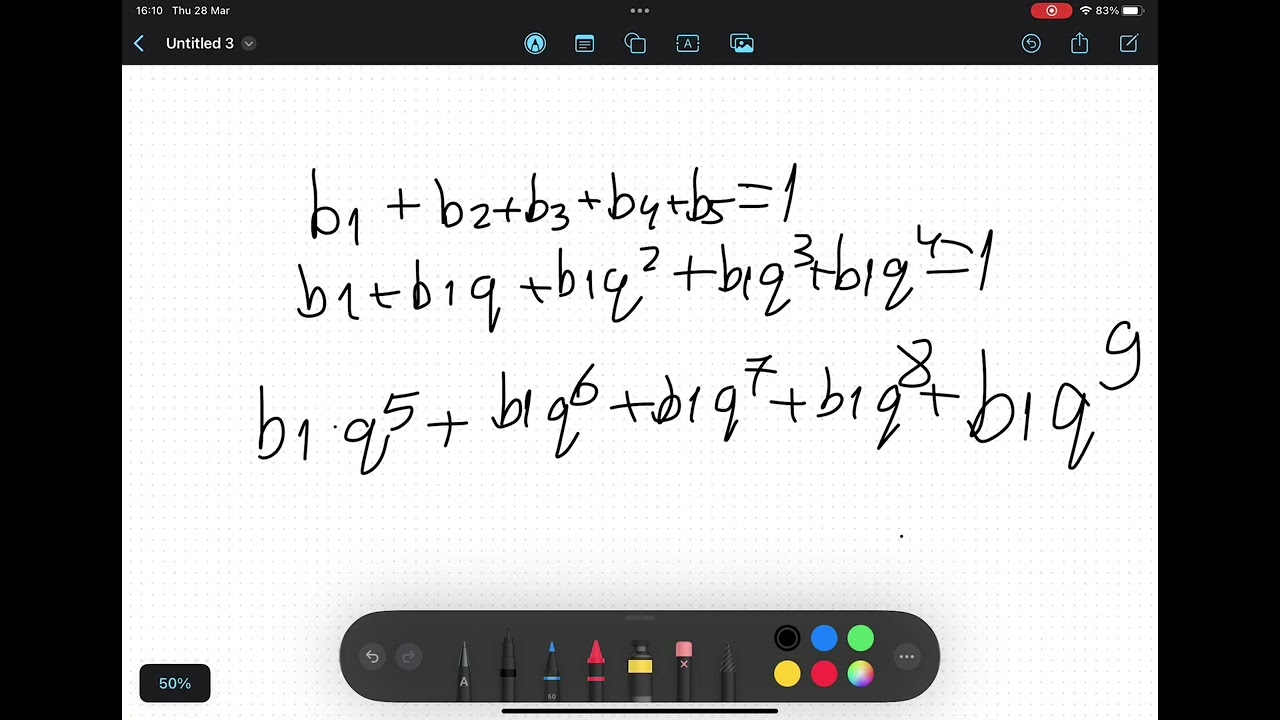 16:10 Thu 28 Mar
83%
Untitled 3
A
b1 + b2+b3+b4+b5=1
b1+b1q+b1q²+b1q³+b1q⁴=1
b1·q⁵+b1q⁶+b1q⁷+b1q⁸+b1q⁹
A
50
50%